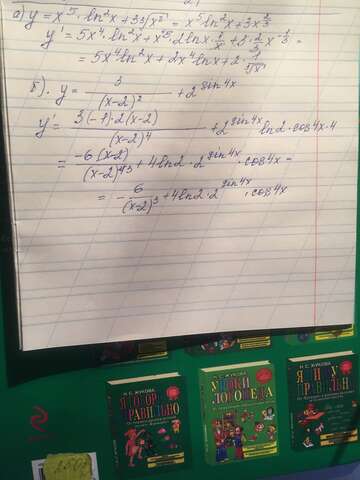 а) y = x⁵ · ln²x + 3∛x² = x⁵ · ln²x + 3x^(2/3)
y' = 5x⁴ · ln²x + x⁵ · 2lnx · 1/x + 3 · 2/3 x^(-1/3) =
= 5x⁴ ln²x + 2x⁴ lnx + 2 · 1/∛x
б). y = 3/(x-2)² + 2^(sin4x)
y' = 3(-1)·2(x-2)/(x-2)⁴ + 2^(sin4x) ln2 · cos4x · 4
= -6(x-2)/(x-2)⁴³ + 4ln2 · 2^(sin4x) · cos4x =
= - 6/(x-2)³ + 4ln2 · 2^(sin4x) · cos4x
Н.С. ЖУКОВА
Я ГОВОРЮ ПРАВИЛЬНО
Н.С. ЖУКОВА
УРОКИ ЛОГОПЕДА
Н.С. ЖУКОВА
Я ПИШУ ПРАВИЛЬНО